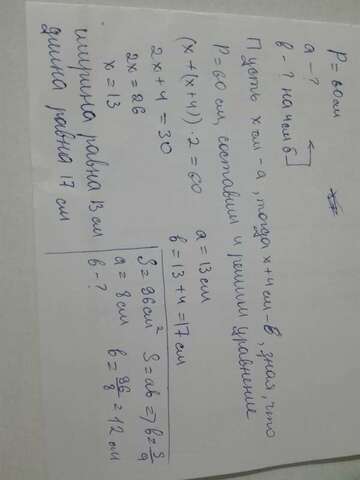 P = 60 см
a - ?
b - ? на 4 см б
Пусть x см - a, тогда x + 4 см - b, зная, что
P = 60 см, составим и решим уравнение
(x + (x + 4)) · 2 = 60
2x + 4 = 30
2x = 26
x = 13
a = 13 см
b = 13 + 4 = 17 см
ширина равна 13 см
длина равна 17 см
S = 96 см² S = ab => b = S/a
a = 8 см b = 96/8 = 12 см
b - ?